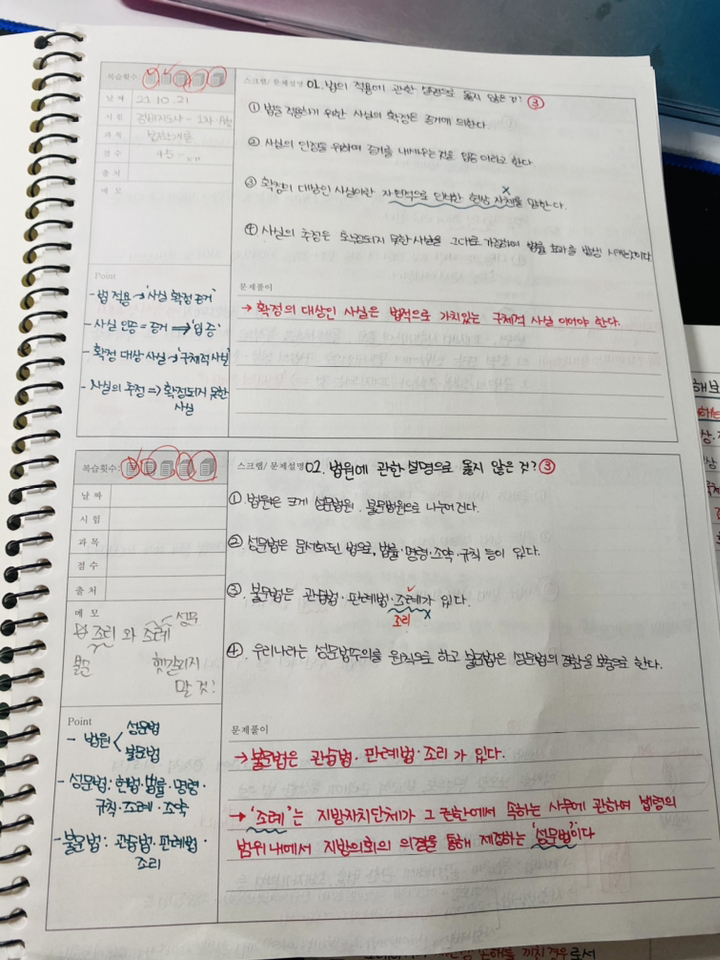 복습횟수:
스크랩/ 문제설명 01. 법의 적용에 관한 설명으로 옳지 않은 것? ③
날 짜 21. 10. 21
시 험 - 1차
과 목
점 수
출 처
메 모
① 법을 적용하기 위한 사실의 확정은 증거에 의한다.
② 사실의 인정을 위하여 증거를 내세우는 것을 입증 이라고 한다
③ 확정의 대상인 사실이란 자연적으로 인식한 현상 자체를 말한다.
x
④ 사실의 추정은 확정되지 못한 사실을 그대로 가정하여 법률 효과를 발생 시키는것이다.
Point
- 법 적용 → '사실 확정 증거'
- 사실 인증 = 증거 ⇒ '입증'
- 확정 대상 사실 → '구체적 사실'
- 사실의 추정 => 확정되지 못한
사실
문제풀이
→ 확정의 대상인 사실은 법적으로 가치있는 구체적 사실 이어야 한다.
복습횟수:
스크랩/ 문제설명 02. 법원에 관한 설명으로 옳지 않은 것? ③
날 짜
시 험
과 목
점 수
출 처
메 모
성문
조리 와 조례
불문 헷갈리지
말 것!
① 법원은 크게 성문법원, 불문법원으로 나누어진다.
② 성문법은 문서화된 법으로, 법률·명령·조약·규칙 등이 있다.
③. 불문법은 관습법·판례법·조례가 있다.
조리 x
④. 우리나라는 성문법주의를 원칙으로 하고 불문법은 성문법의 결함을 보충으로 한다.
Point
- 법원 < 성문법
불문법
- 성문법: 헌법·법률·명령·
규칙·조례·조약
- 불문법: 관습법·판례법·
조리
문제풀이
→ 불문법은 관습법·판례법·조리 가 있다.
→ '조례'는 지방자치단체가 그 권한에서 속하는 사무에 관하여 법령의
범위 내에서 지방의회의 의결을 통해 제정하는 '성문법'이다